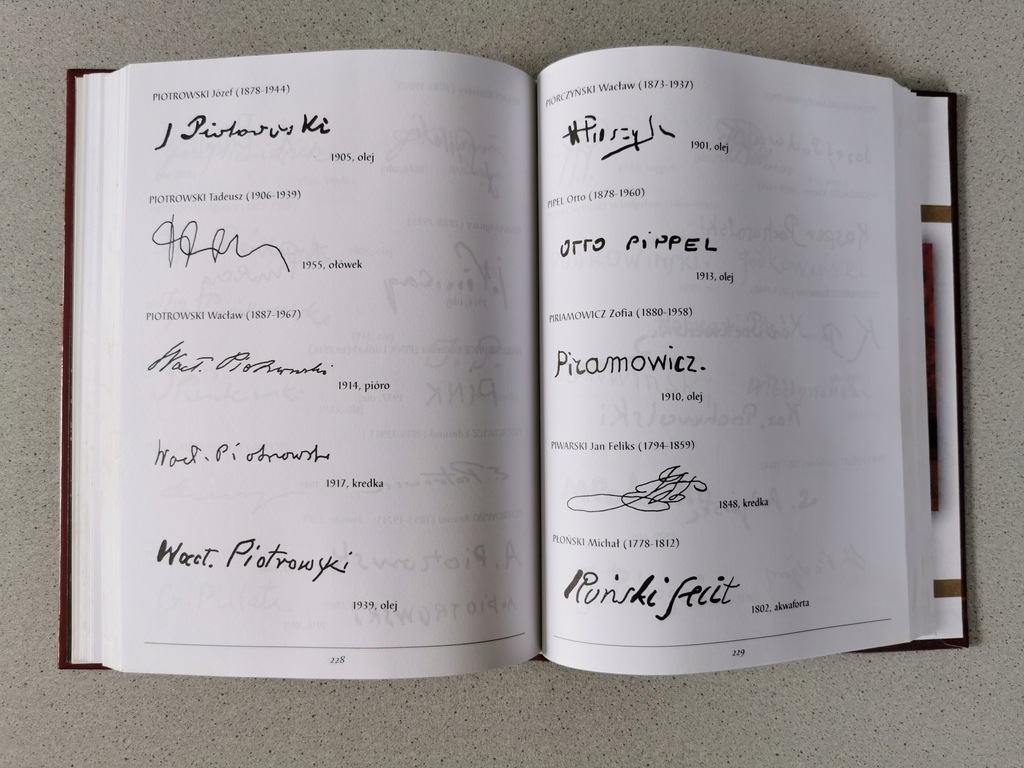 PIOTROWSKI Józef (1878-1944)
J Piotrowski
1905, olej
PIOTROWSKI Tadeusz (1906-1939)
1955, ołówek
PIOTROWSKI Wacław (1887-1967)
Wacł. Piotrowski
1914, pióro
Wacł. Piotrowski
1917, kredka
Wacł. Piotrowski
1939, olej
228
PIÓRCZYŃSKI Wacław (1873-1937)
1901, olej
PIPEL Otto (1878-1960)
OTTO PIPPEL
1913, olej
PIRIAMOWICZ Zofia (1880-1958)
Piramowicz.
1910, olej
PIWARSKI Jan Feliks (1794-1859)
1848, kredka
PŁOŃSKI Michał (1778-1812)
fecit
1802, akwaforta
229